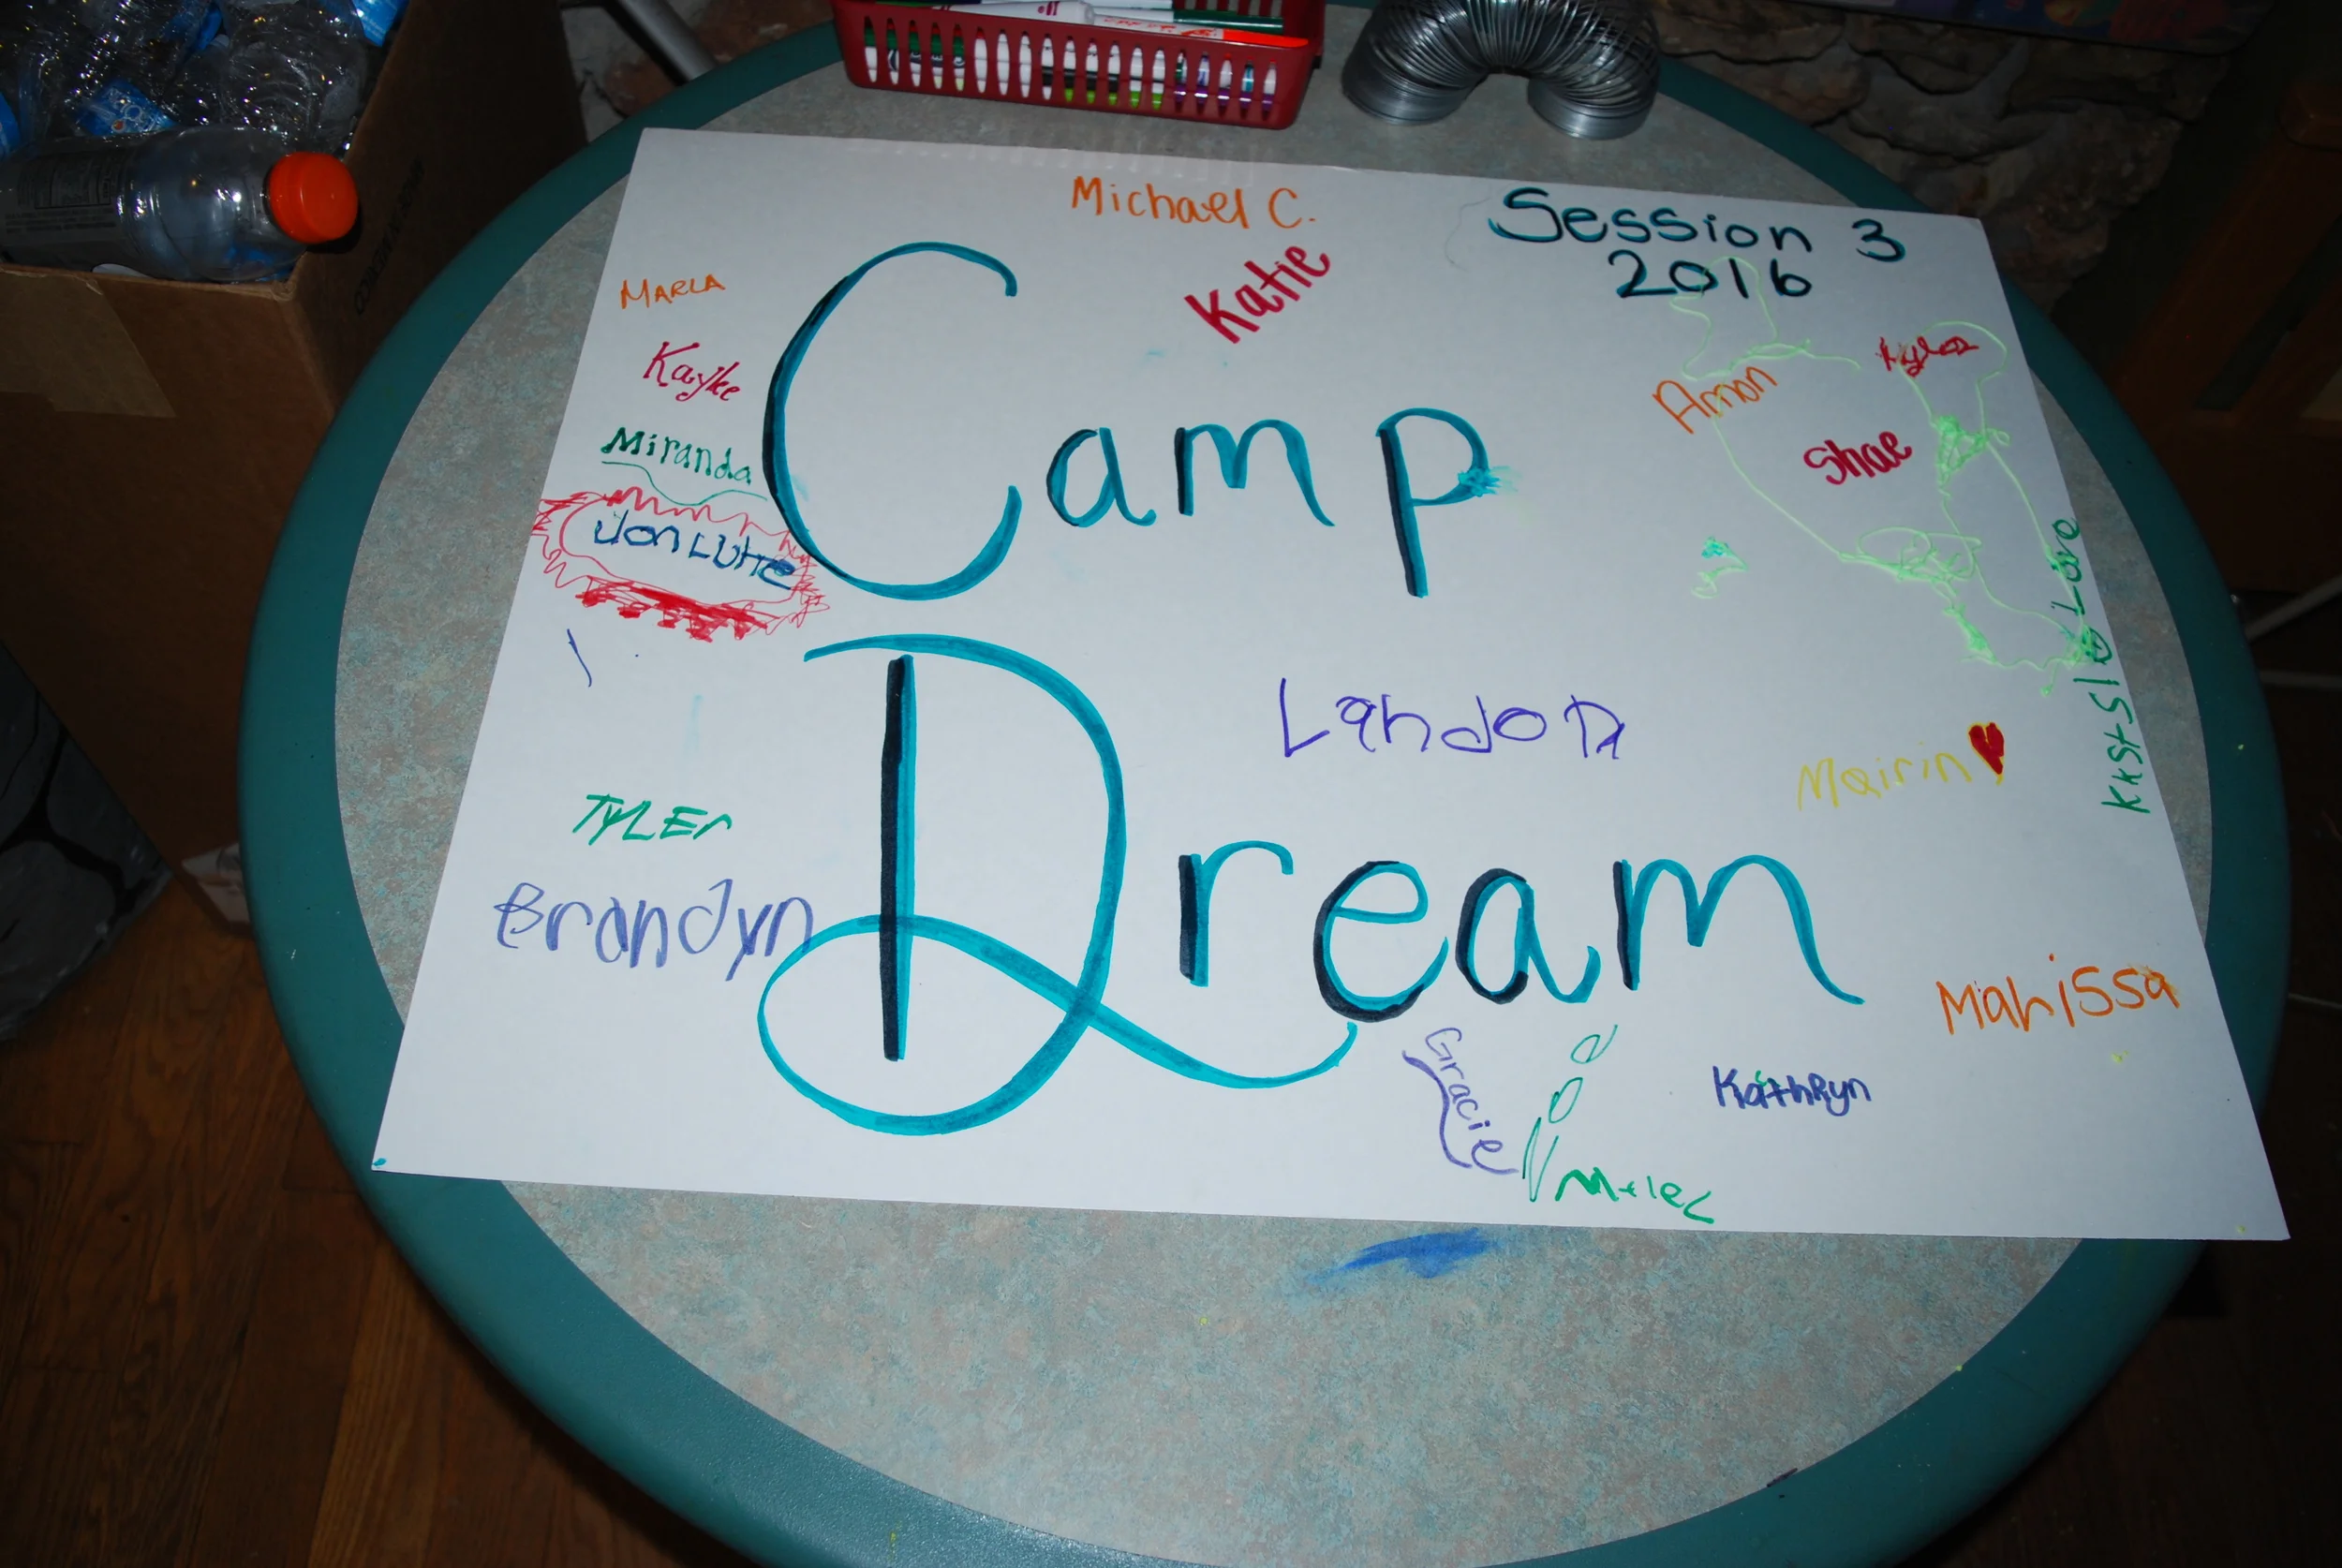 Michael C.
Session 3
2016
Katie
MARLA
Kaylee
Miranda
Jon LUKe
Camp
Amon
Kyler
Shae
Love
TYLEr
Brandyn
Dream
Landon
Mairin
Mahissa
Gracie
KathRyn